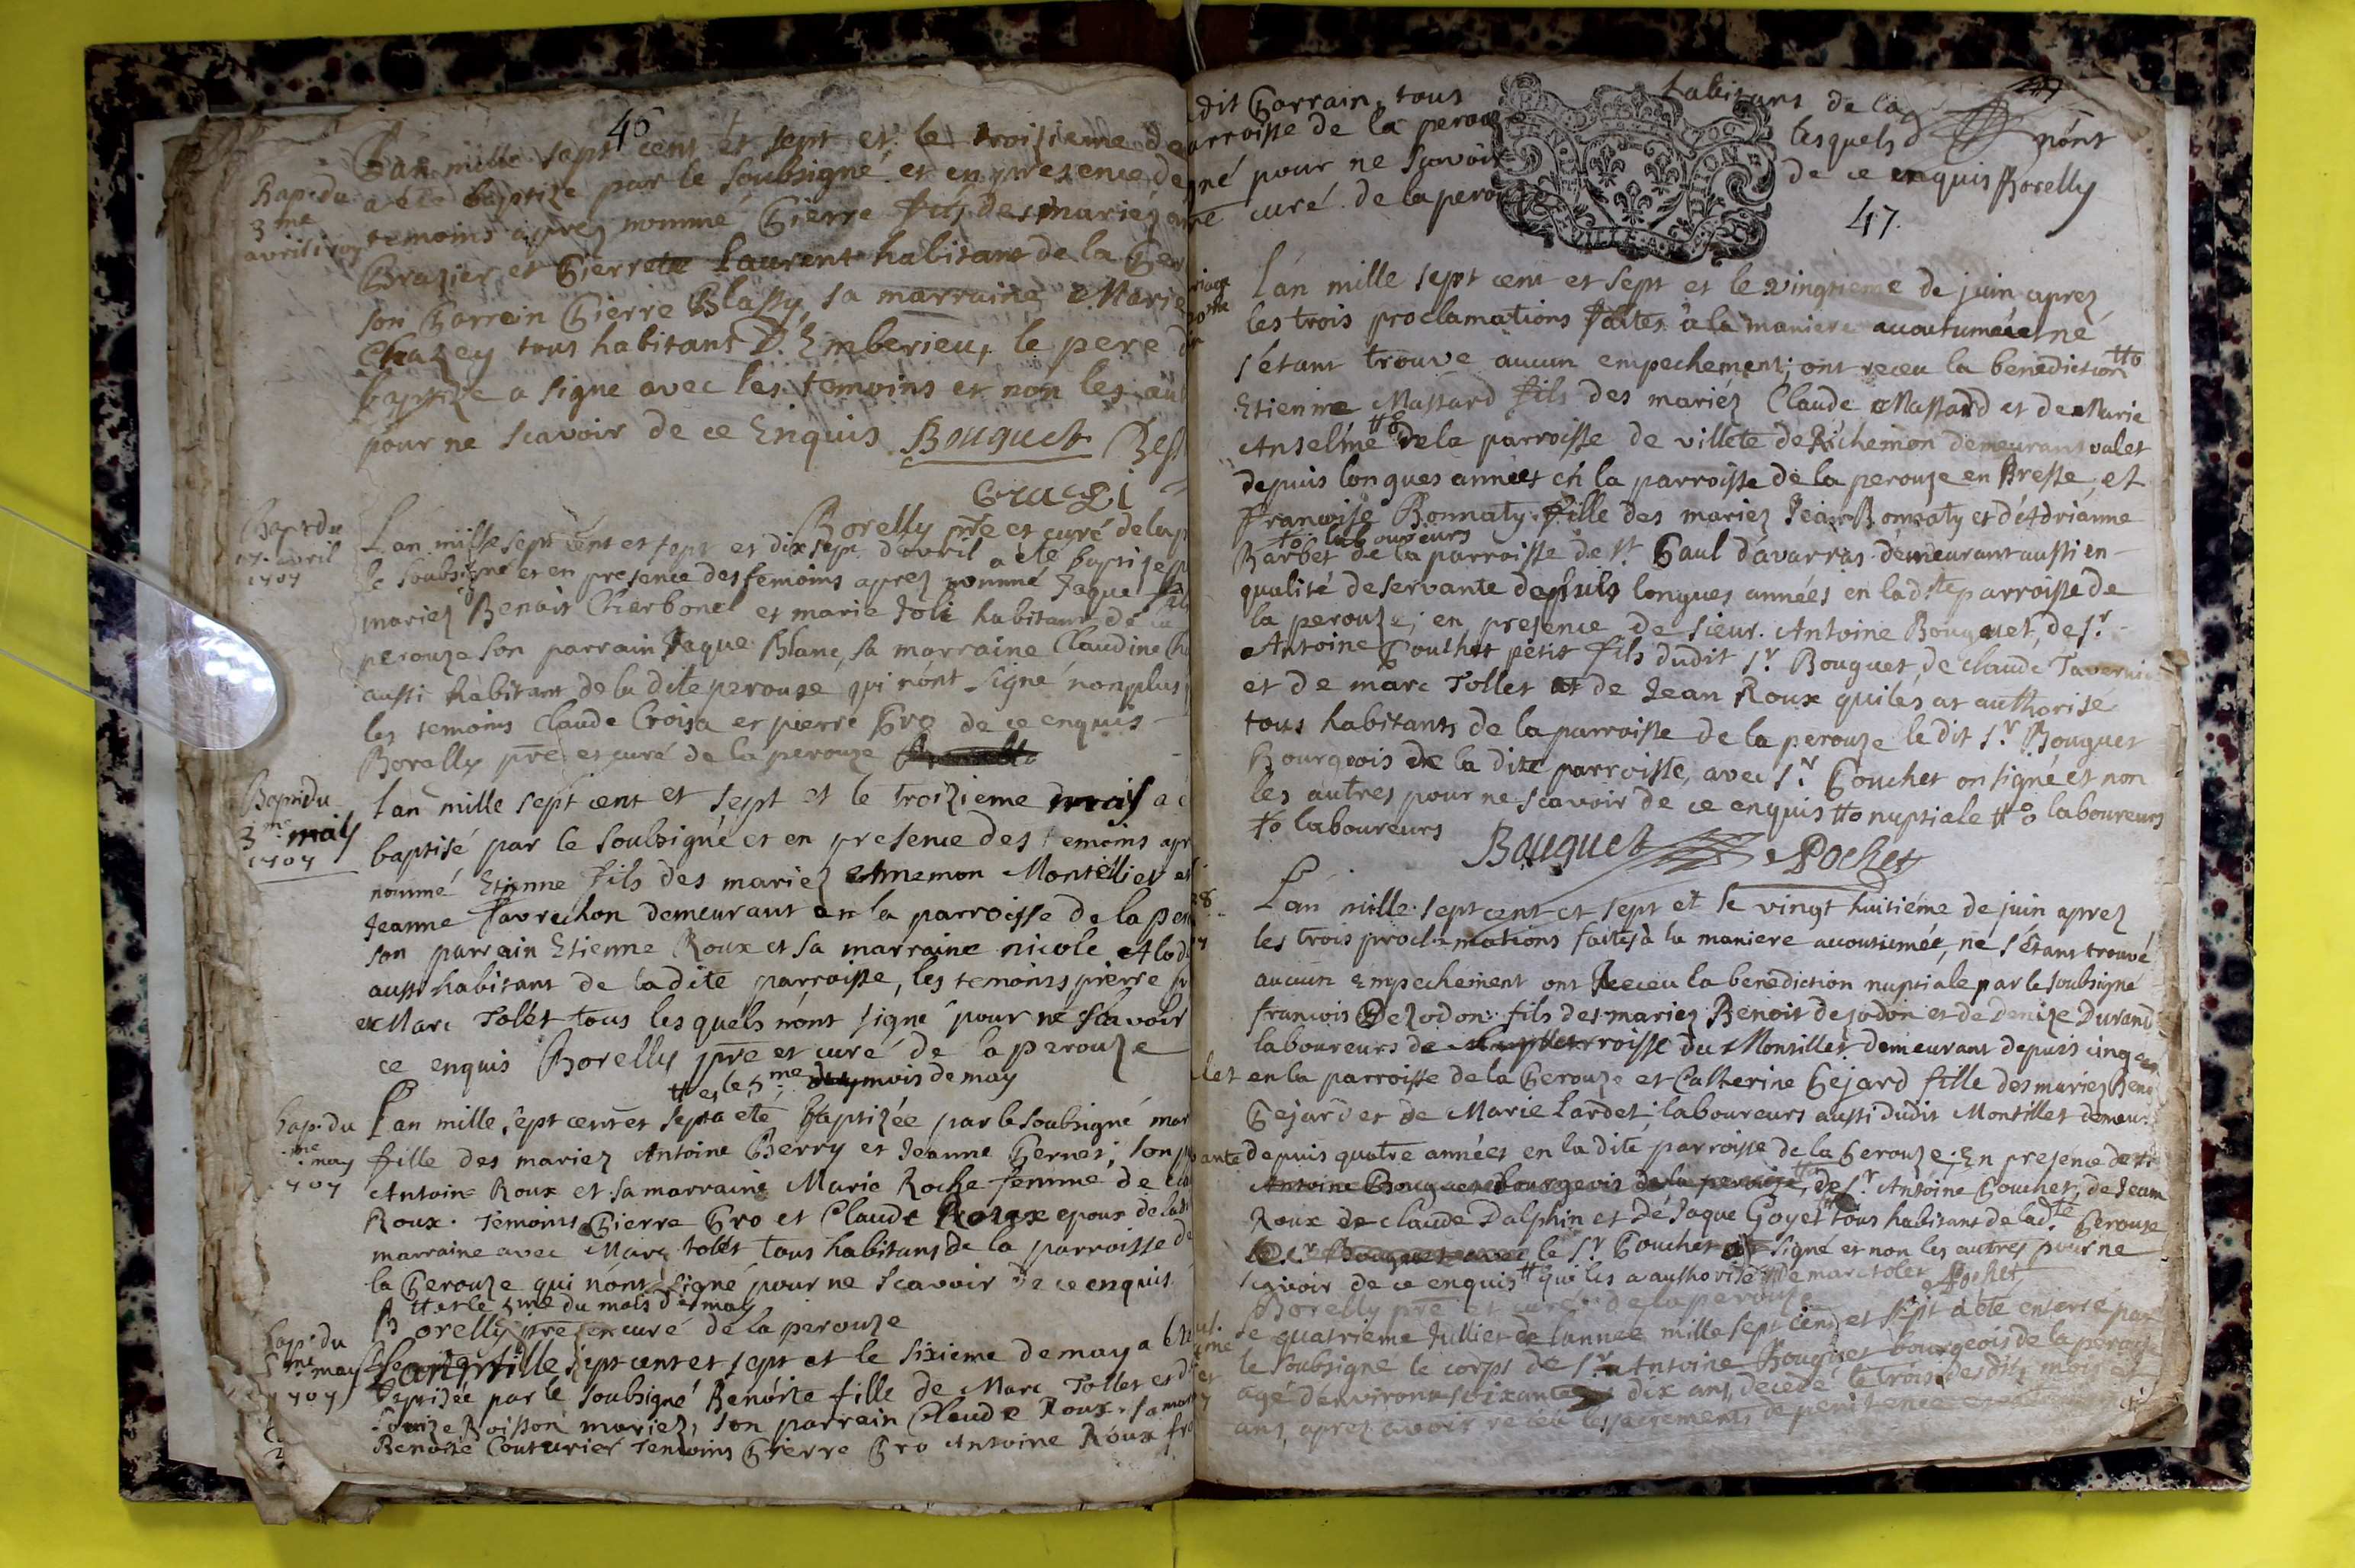 46
L'an mille sept cent et sept et le troisieme de
a été baptize par le soubsigné et en presence de
temoins aprez nommé Pierre fils des mariez
Brazier et Pierrete Laurent habitant de la Per
son Parrein Pierre Blassy, sa marraine Marie
Chazey tous habitant D'Emberieu, le pere
baptize a signé avec les temoins et non les au
pour ne scavoir de ce Enquis Bouquet
Borelly pre et curé de la p
Bap. du
3me
avril 1707
L'an mille sept cent et sept et dix sept d'avril a été baptisé p
le soubsigné et en presence des temoins aprez nommé Jaque fils
mariez Benoit Cherbonel et marie Joli habitant de la
perouze son parrain Jaque Blanc, sa marraine Claudine
aussi habitant de la dite perouze qui n'ont signé non plus
les temoins Claude Croisa et pierre Gro de ce enquis
Borelly pre et curé de la perouze
Bap. du
17. avril
1707
L'an mille sept cent et sept et le troizieme may a é
baptisé par le soubsigné et en presence des temoins apr
nommé Etienne fils des mariez Annemon Montellier et
Jeanne Favrechon demeurant en la parroisse de la per
son parrain Etienne Roux et sa marraine nicole
aussi habitant de ladite parroisse, les temoins pierre
et Marc Tolet tous lesquels n'ont signé pour ne scavoir
ce enquis Borelly pre et curé de la perouze
Bap. du
3me may
1707
et le 5me du mois de may
L'an mille sept cent et sept a eté baptizée par le soubsigné mar
fille des mariez Antoine Perry et Jeanne Pernet, son p
Antoine Roux et sa marraine Marie Roche femme de
Roux. Temoins Pierre Gro et Claude Roux epoux de lad
marraine avec Marc tolet tous habitans de la parroisse de
la Perouze qui n'ont signé pour ne scavoir de ce enquis
et le 5me du mois de may
Borelly pre et curé de la perouze
Bap. du
me may
1707
L'an mille sept cent et sept et le sixieme de may a été
baptisée par le soubsigné Benoite fille de Marc Tollet et d
Roisson mariez, son parrain Claude Roux. sa mar
Benoite Couturier temoins Pierre Gro Antoine Roux
Bap. du
may
1707
dit Parrain, tous habitans de la
arroisse de la perouze lesquels n'ont
né pour ne scavoir de ce enquis Borelly
curé de la perouze
47
L'an mille sept cent et sept et le vingtieme de juin aprez
les trois proclamations faites a la maniere accoutumée ne
s'étant trouve aucun empechement, ont receu la benediction
Etienne Massard fils des mariez Claude Massard et de Marie
Anselme de la parroisse de villete de Richemon demeurant valet
depuis longues années en la parroisse de la perouze en Bresse, et
Francoise Bonnaty fille des mariez Jean Bonnaty et d'Adrianne
to laboureurs
Barbet de la parroisse de St Paul davarras demeurant aussi en
qualité de servante depuis longues années en ladte parroisse de
la perouze; en presence de sieur Antoine Bouquet, de sr
Antoine Pouchet petit fils dudit sr Bouquet, de claude Tavernie
et de marc Tollet et de Jean Roux qui les at authorisé
tous habitants de la parroisse de la perouze le dit sr Bouquet
bourgeois de la dite parroisse, avec sr Pouchet on signé et non
les autres pour ne scavoir de ce enquis tto nuptiale tto laboureurs
to laboureurs Bouquet Pochet
L'an mille sept cent et sept et le vingt huitiéme de juin aprez
les trois proclamations faites à la maniere accoutumée, ne s'étant trouvé
aucun Empechement ont Receu la benediction nuptiale par le soubsigné
francois Dezodon fils des mariez Benoit dezodon et de Denize Durand
laboureurs de parroisse du Montillet demeurant depuis cinq
let en la parroisse de la Perouze et Catherine Pejard fille des mariez Beno
Pejard et de Marie Lardet; laboureurs aussi dudit Montillet demeu
ante depuis quatre années en la dite parroisse de la Perouze; En presence de
Antoine Bouquet Bourgeois de la perouze, de Sr Antoine Pouchet, de Jean
Roux de claude Dalphin et de Jaque Goyet tous habitant de ladte Perouze
le sr Bouquet avec le sr Pouchet at signé et non les autres pour ne
scavoir de ce enquis tt qui les a authorisé tt de marc tolet Pochet
Borelly pre et curé de la perouze
Le quatrieme Julliet de lannee mille sept cent et sept a été enterré par
le soubsigne le corps de sr Antoine Bouquet bourgeois de la perouze
agé d'environ soixante dix ans, decedé le trois desdits mois et
ans, aprez avoir receu les sacrements de penitence